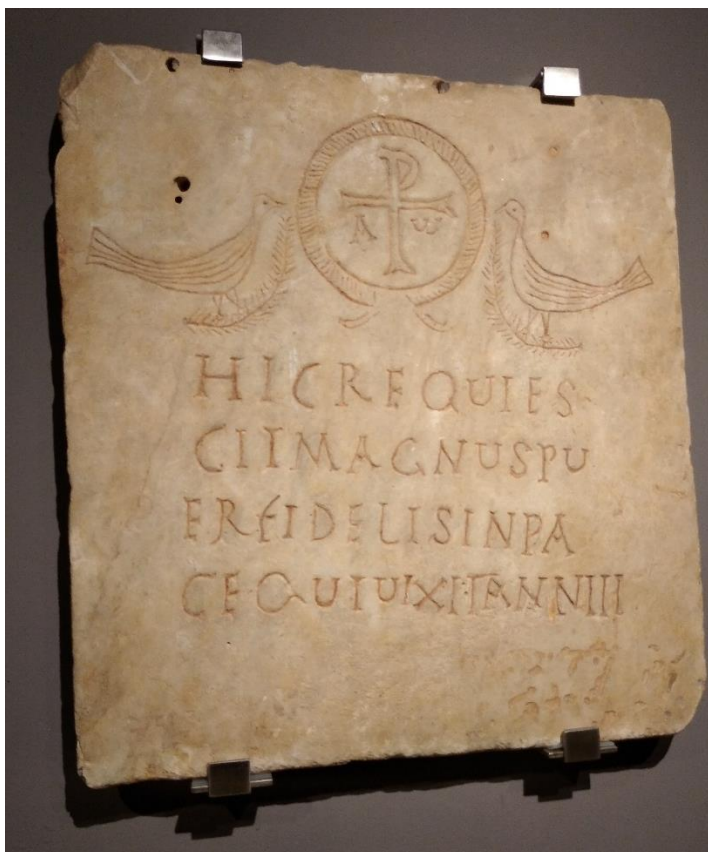 A ω
HIC REQUIES
CIT MAGNUS PU
ER FIDELIS IN PA
CE QUI UIXIT ANN III